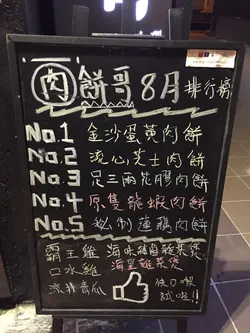 肉餅哥8月排行榜
No.1 金沙蛋黃肉餅
No.2 流心芝士肉餅
No.3 昆三兩花膠肉餅
No.4 原隻龍蝦肉餅
No.5 私制蓮藕肉餅
霸王雞
口水雞
涼拌青瓜
海味雜菌雜菜煲
海皇雜菜煲
快D嚟
試啦!!